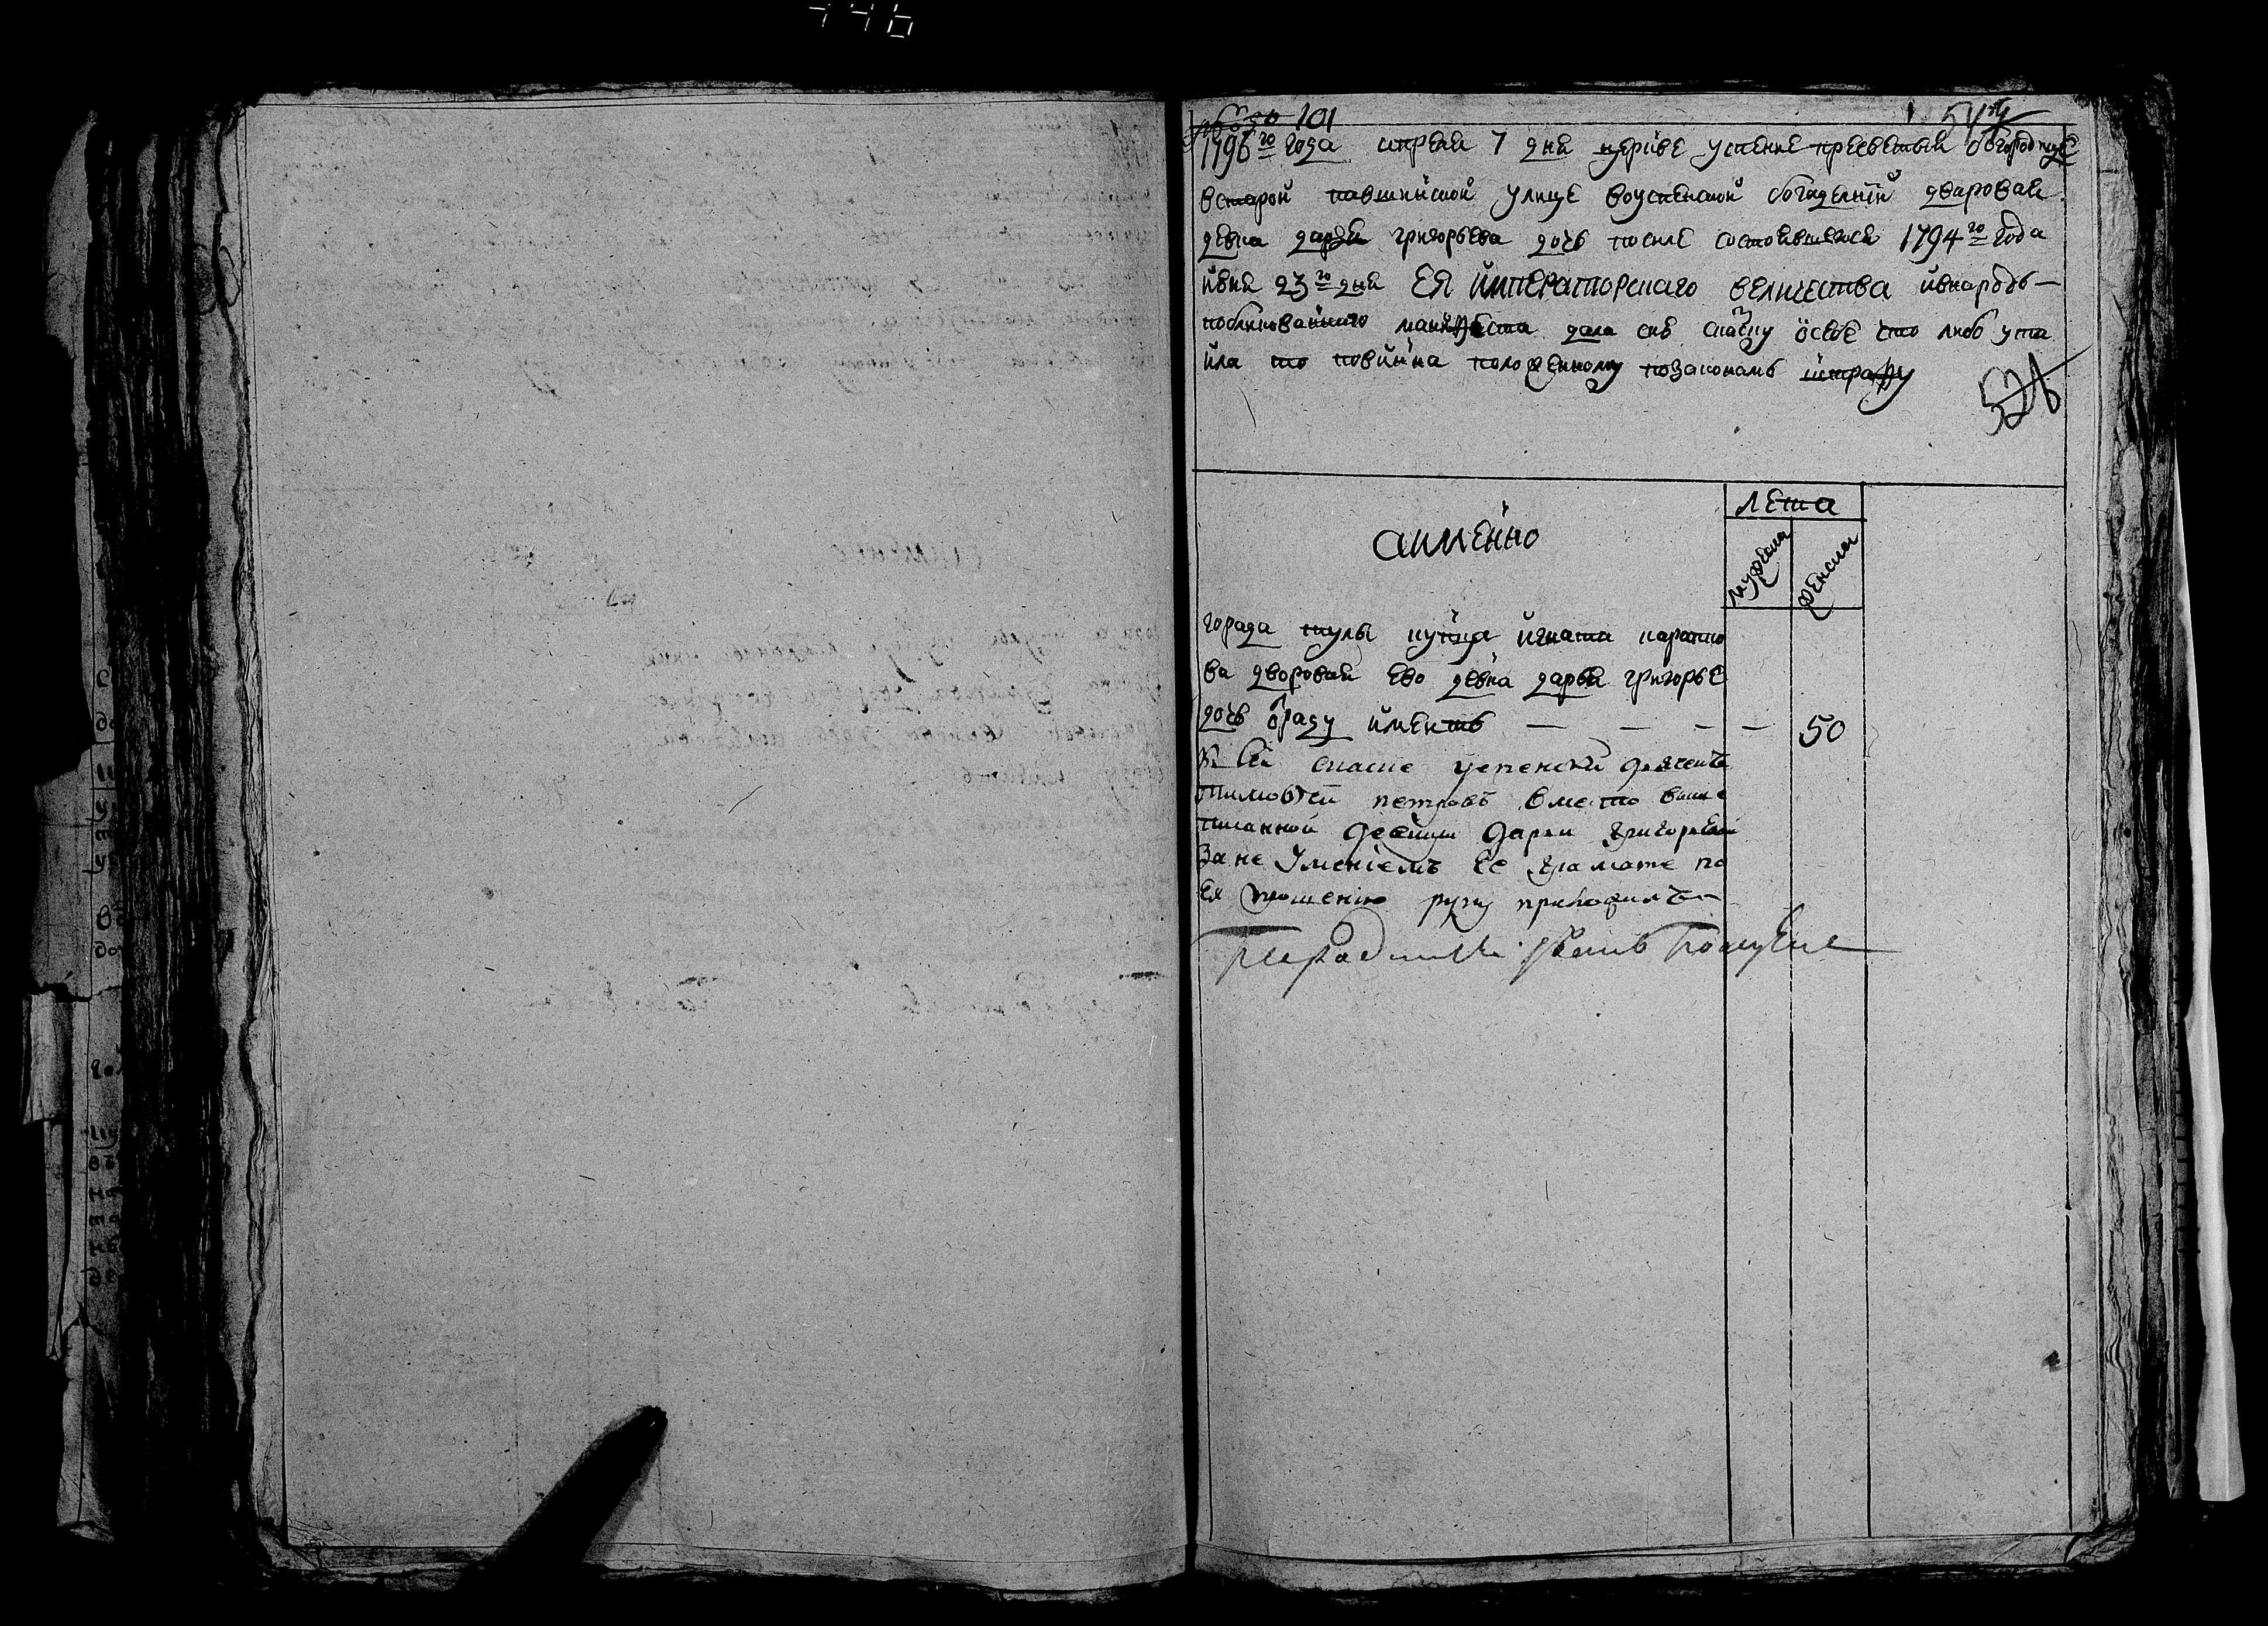 101
1796го года апреля 7 дня церкве успение пресветыя богородице
встарой павшинской улице воуспенской богаделнй дваровая
девка дарья григорьева дочь после состоявшегося 1794го года
июня 23го дня ЕЯ ИМПЕРАТОРСКАГО величества ивнародъ
публикованного манифеста дала сию скаску освое что либо ута
ила то повинна положенному позаконамъ штрафу
526
аименно
лета
мужеска
женска
города тулы купца игната
ва дворовая ево девка дарья григорье
дочь отраду именть 50
Ксей скаске успенски дьячекъ
тимофеи петровъ вместо выше
писанной девицы дарьи григорьевой
Зане Умениемъ ее грамате по
Ея прошению руку приложилъ